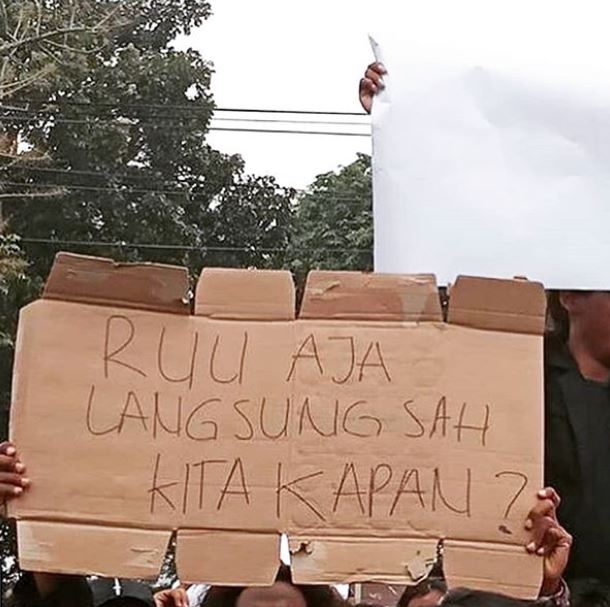 RUU AJA
LANGSUNG SAH
KITA KAPAN?